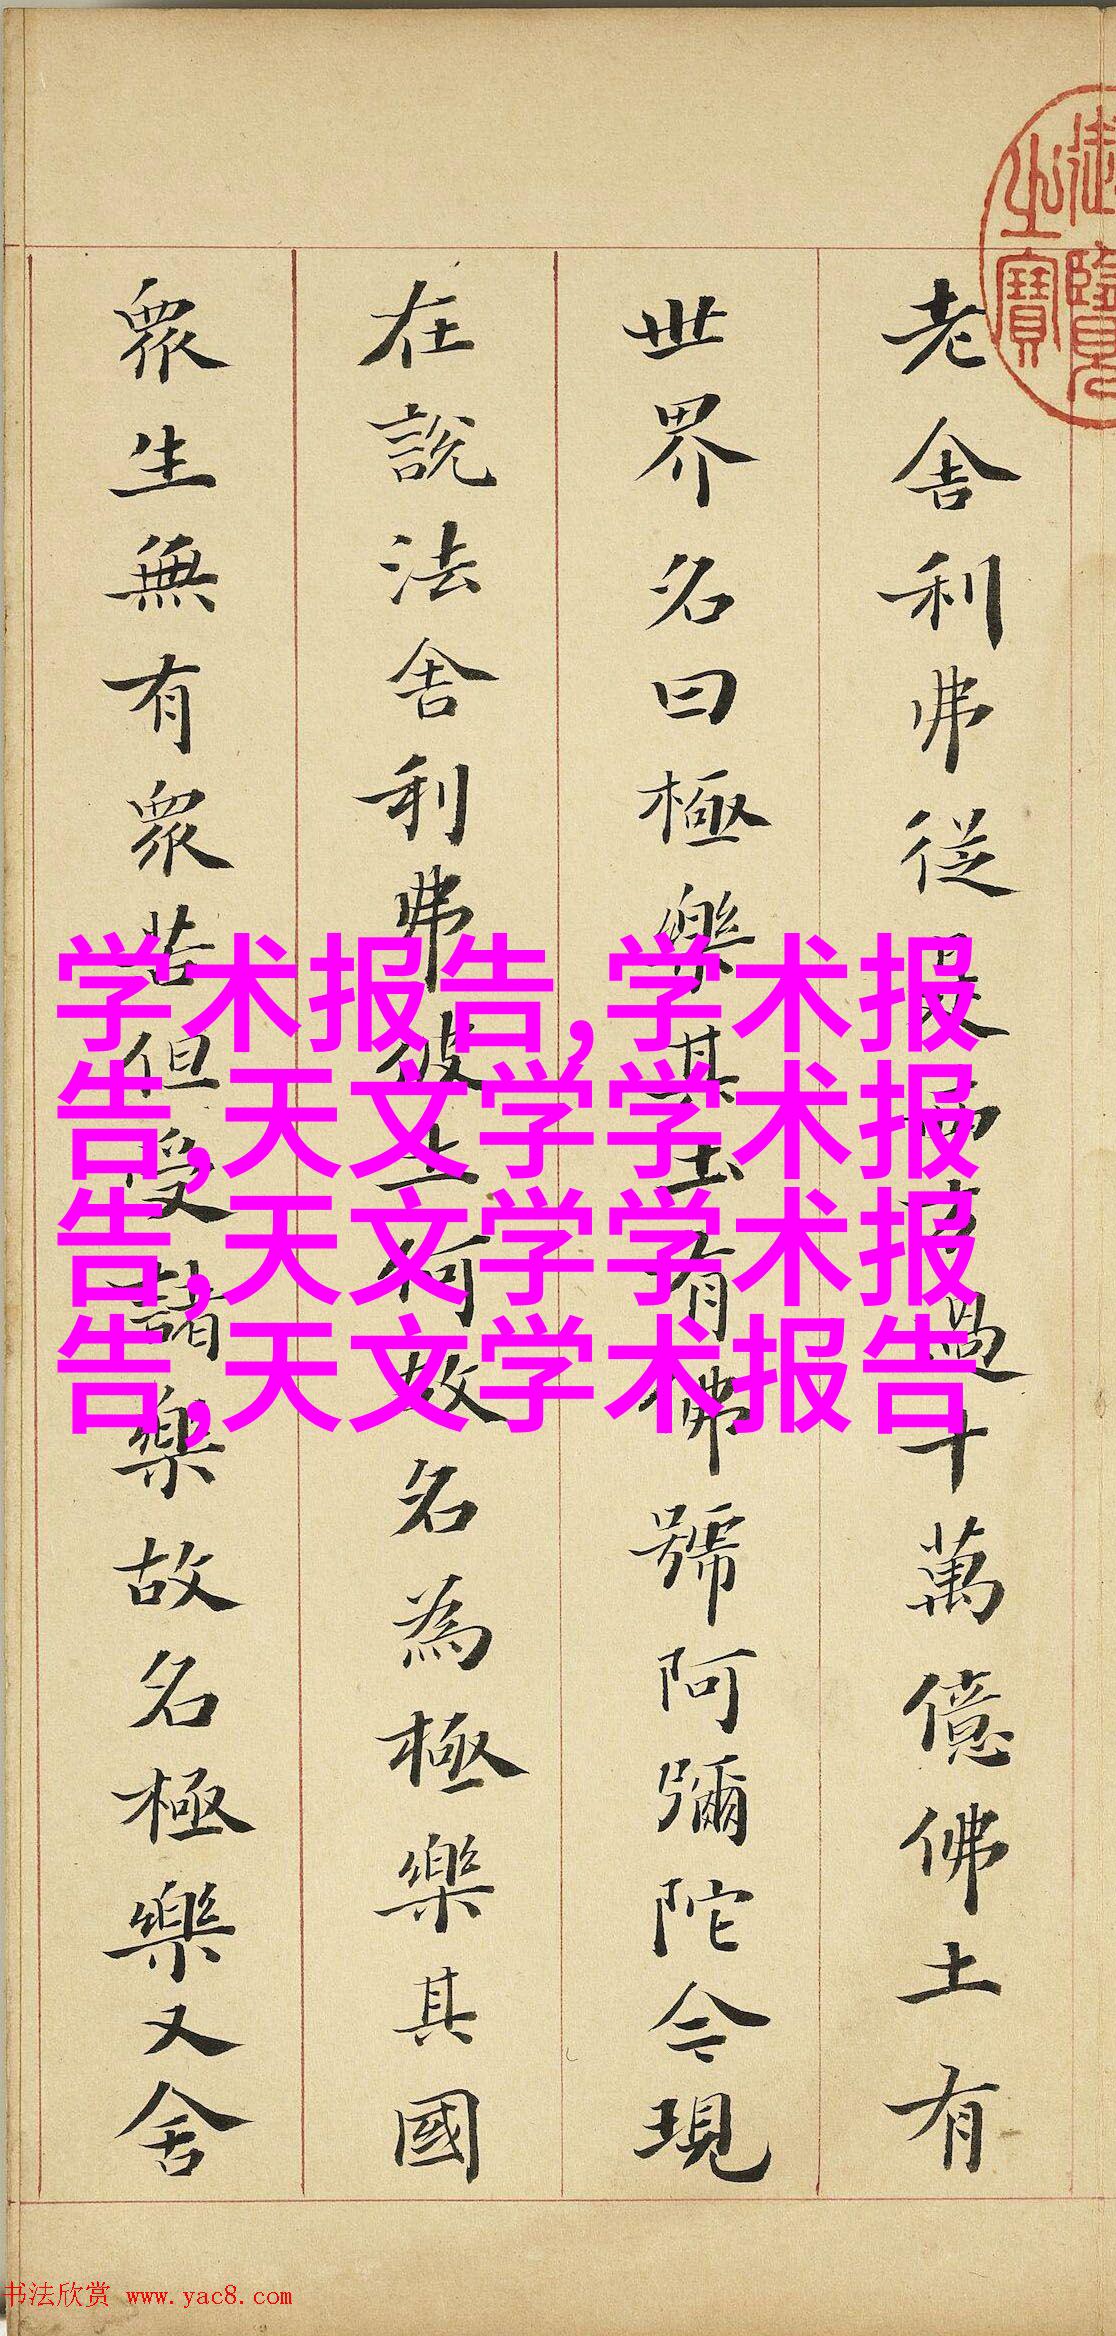 御覽
之寶
老舍利弗從是西方過十萬億佛土有
世界名曰極樂其土有佛號阿彌陀今現
在說法舍利弗彼土何故名為極樂其國
眾生無有眾苦但受諸樂故名極樂又舍
学术报告,学术报
告,天文学学术报
告,天文学学术报
告,天文学术报告
书法欣赏 www.yac8.com